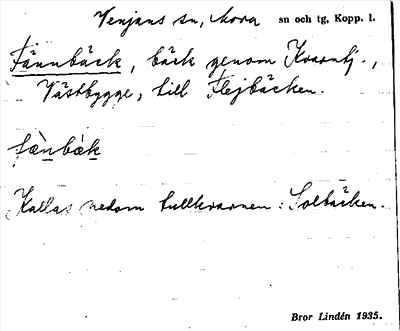 Venjans sn, Mora sn och tg, Kopp. l.
Fännbäck, bäck genom Kvarntj.,
Västbygge, till Flejbäcken.
fænbæk
Kallas nedom tullkvarnen: Solbäcken.
Bror Lindén 1935.